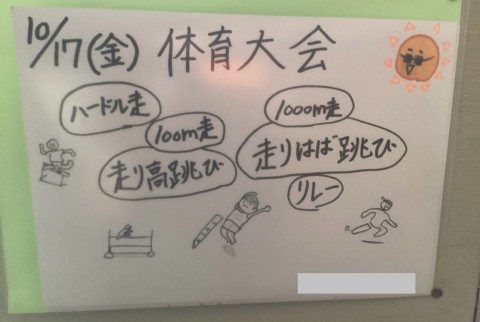 10/17(金) 体育大会
ハードル走
100m走
走り高跳び
1000m走
走りはば跳び
リレー